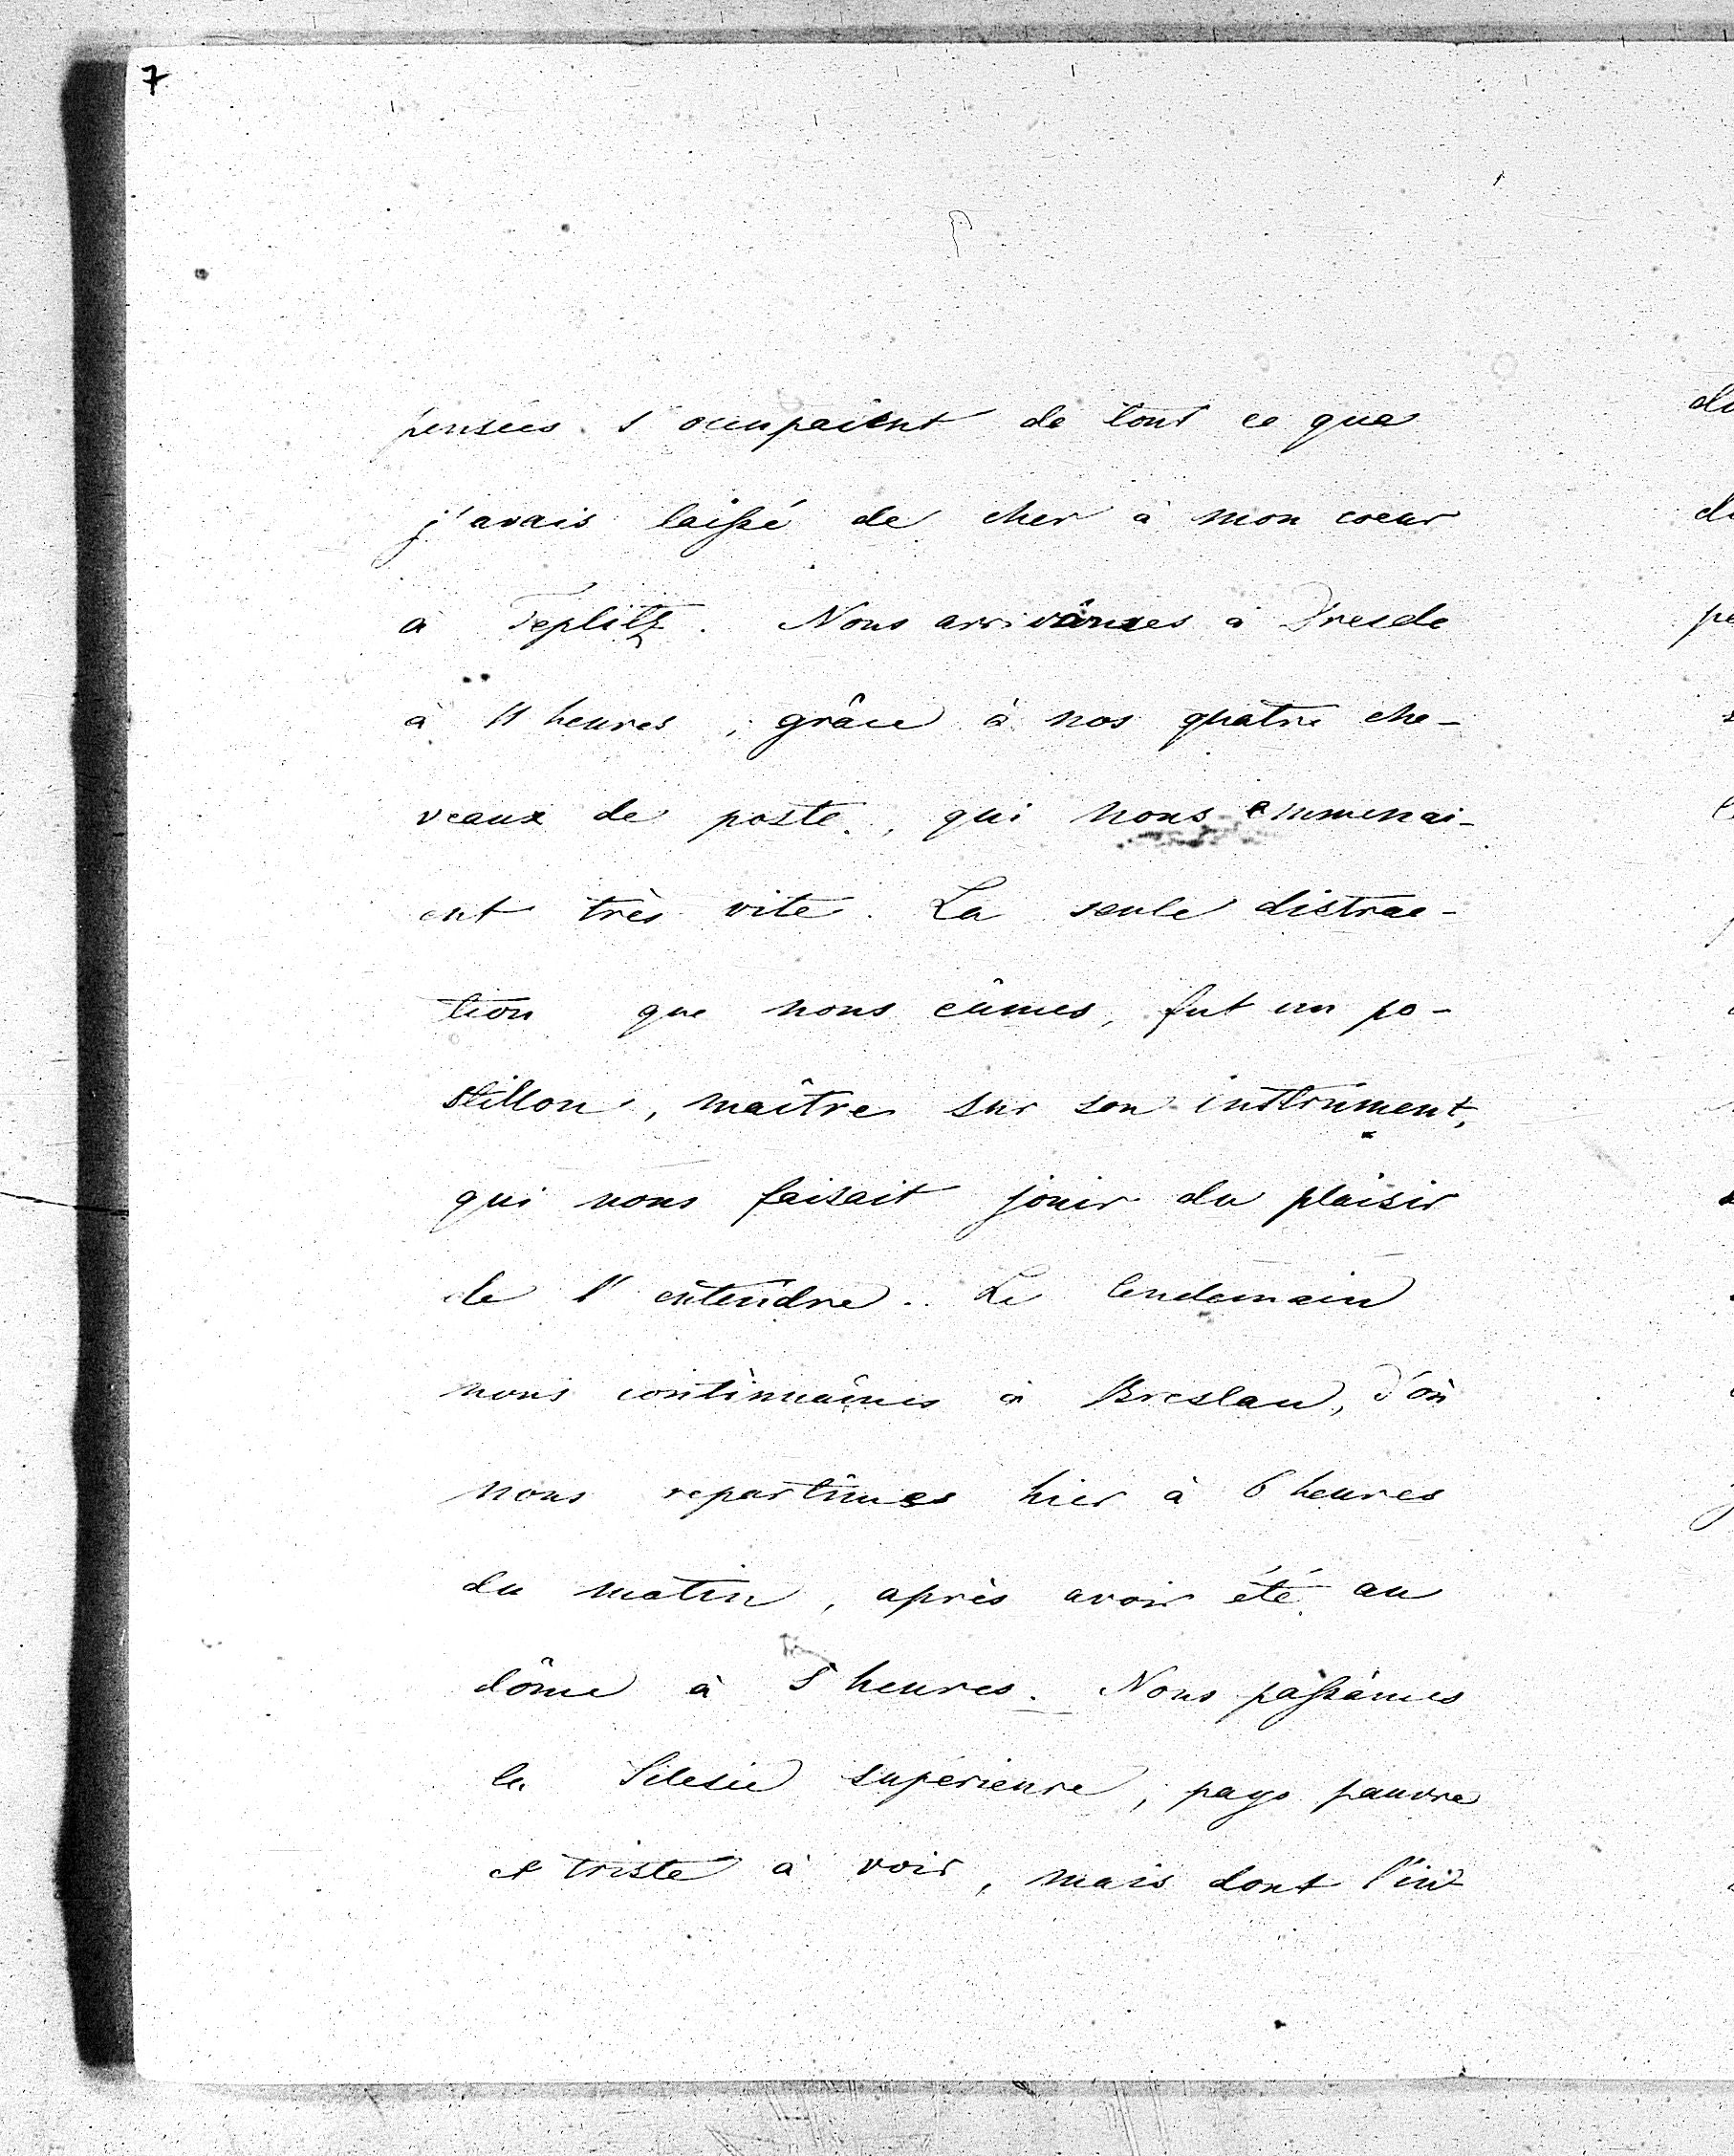 7
pensées s'occupaient de tout ce que
j'avais laissé de cher à mon coeur
à Teplitz. Nous arrivâmes à Dresde
à 11 heures, grâce à nos quatre che-
veaux de poste, qui nous emmenai-
ent très vite. La seule distrac-
tion que nous eûmes, fut un po-
stillon, maître sur son instrument,
qui nous faisait jouir du plaisir
de l'entendre. Le lendemain
nous continuâmes à Breslau, d'où
nous repartîmes hier à 6 heures
du matin, après avoir été au
dôme à 5 heures. Nous passâmes
la Silesie supérieure, pays pauvre
et triste à voir, mais dont l'in-